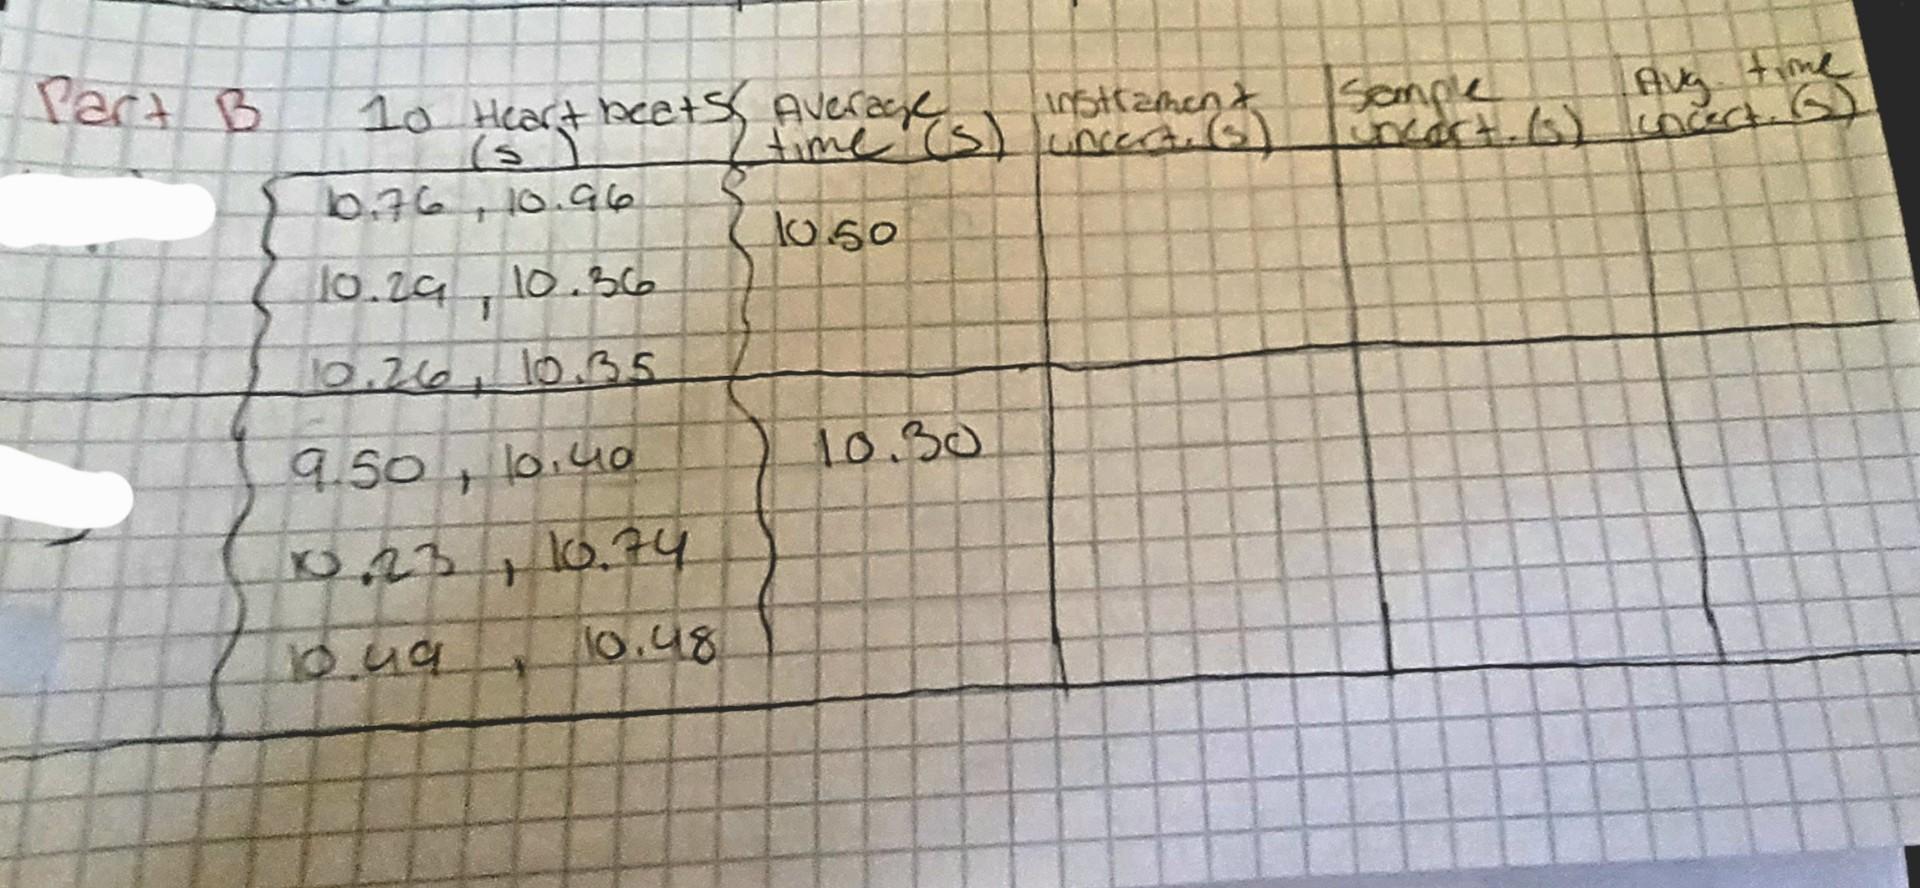 Part B 10 Heart beats (s) Average time (s) instrument uncert. (s) Sample uncert. (s) Avg. time uncert. (s)
10.76, 10.96 10.50
10.29, 10.36
10.26, 10.35
9.50, 10.40 10.30
10.23, 10.74
10.49, 10.48